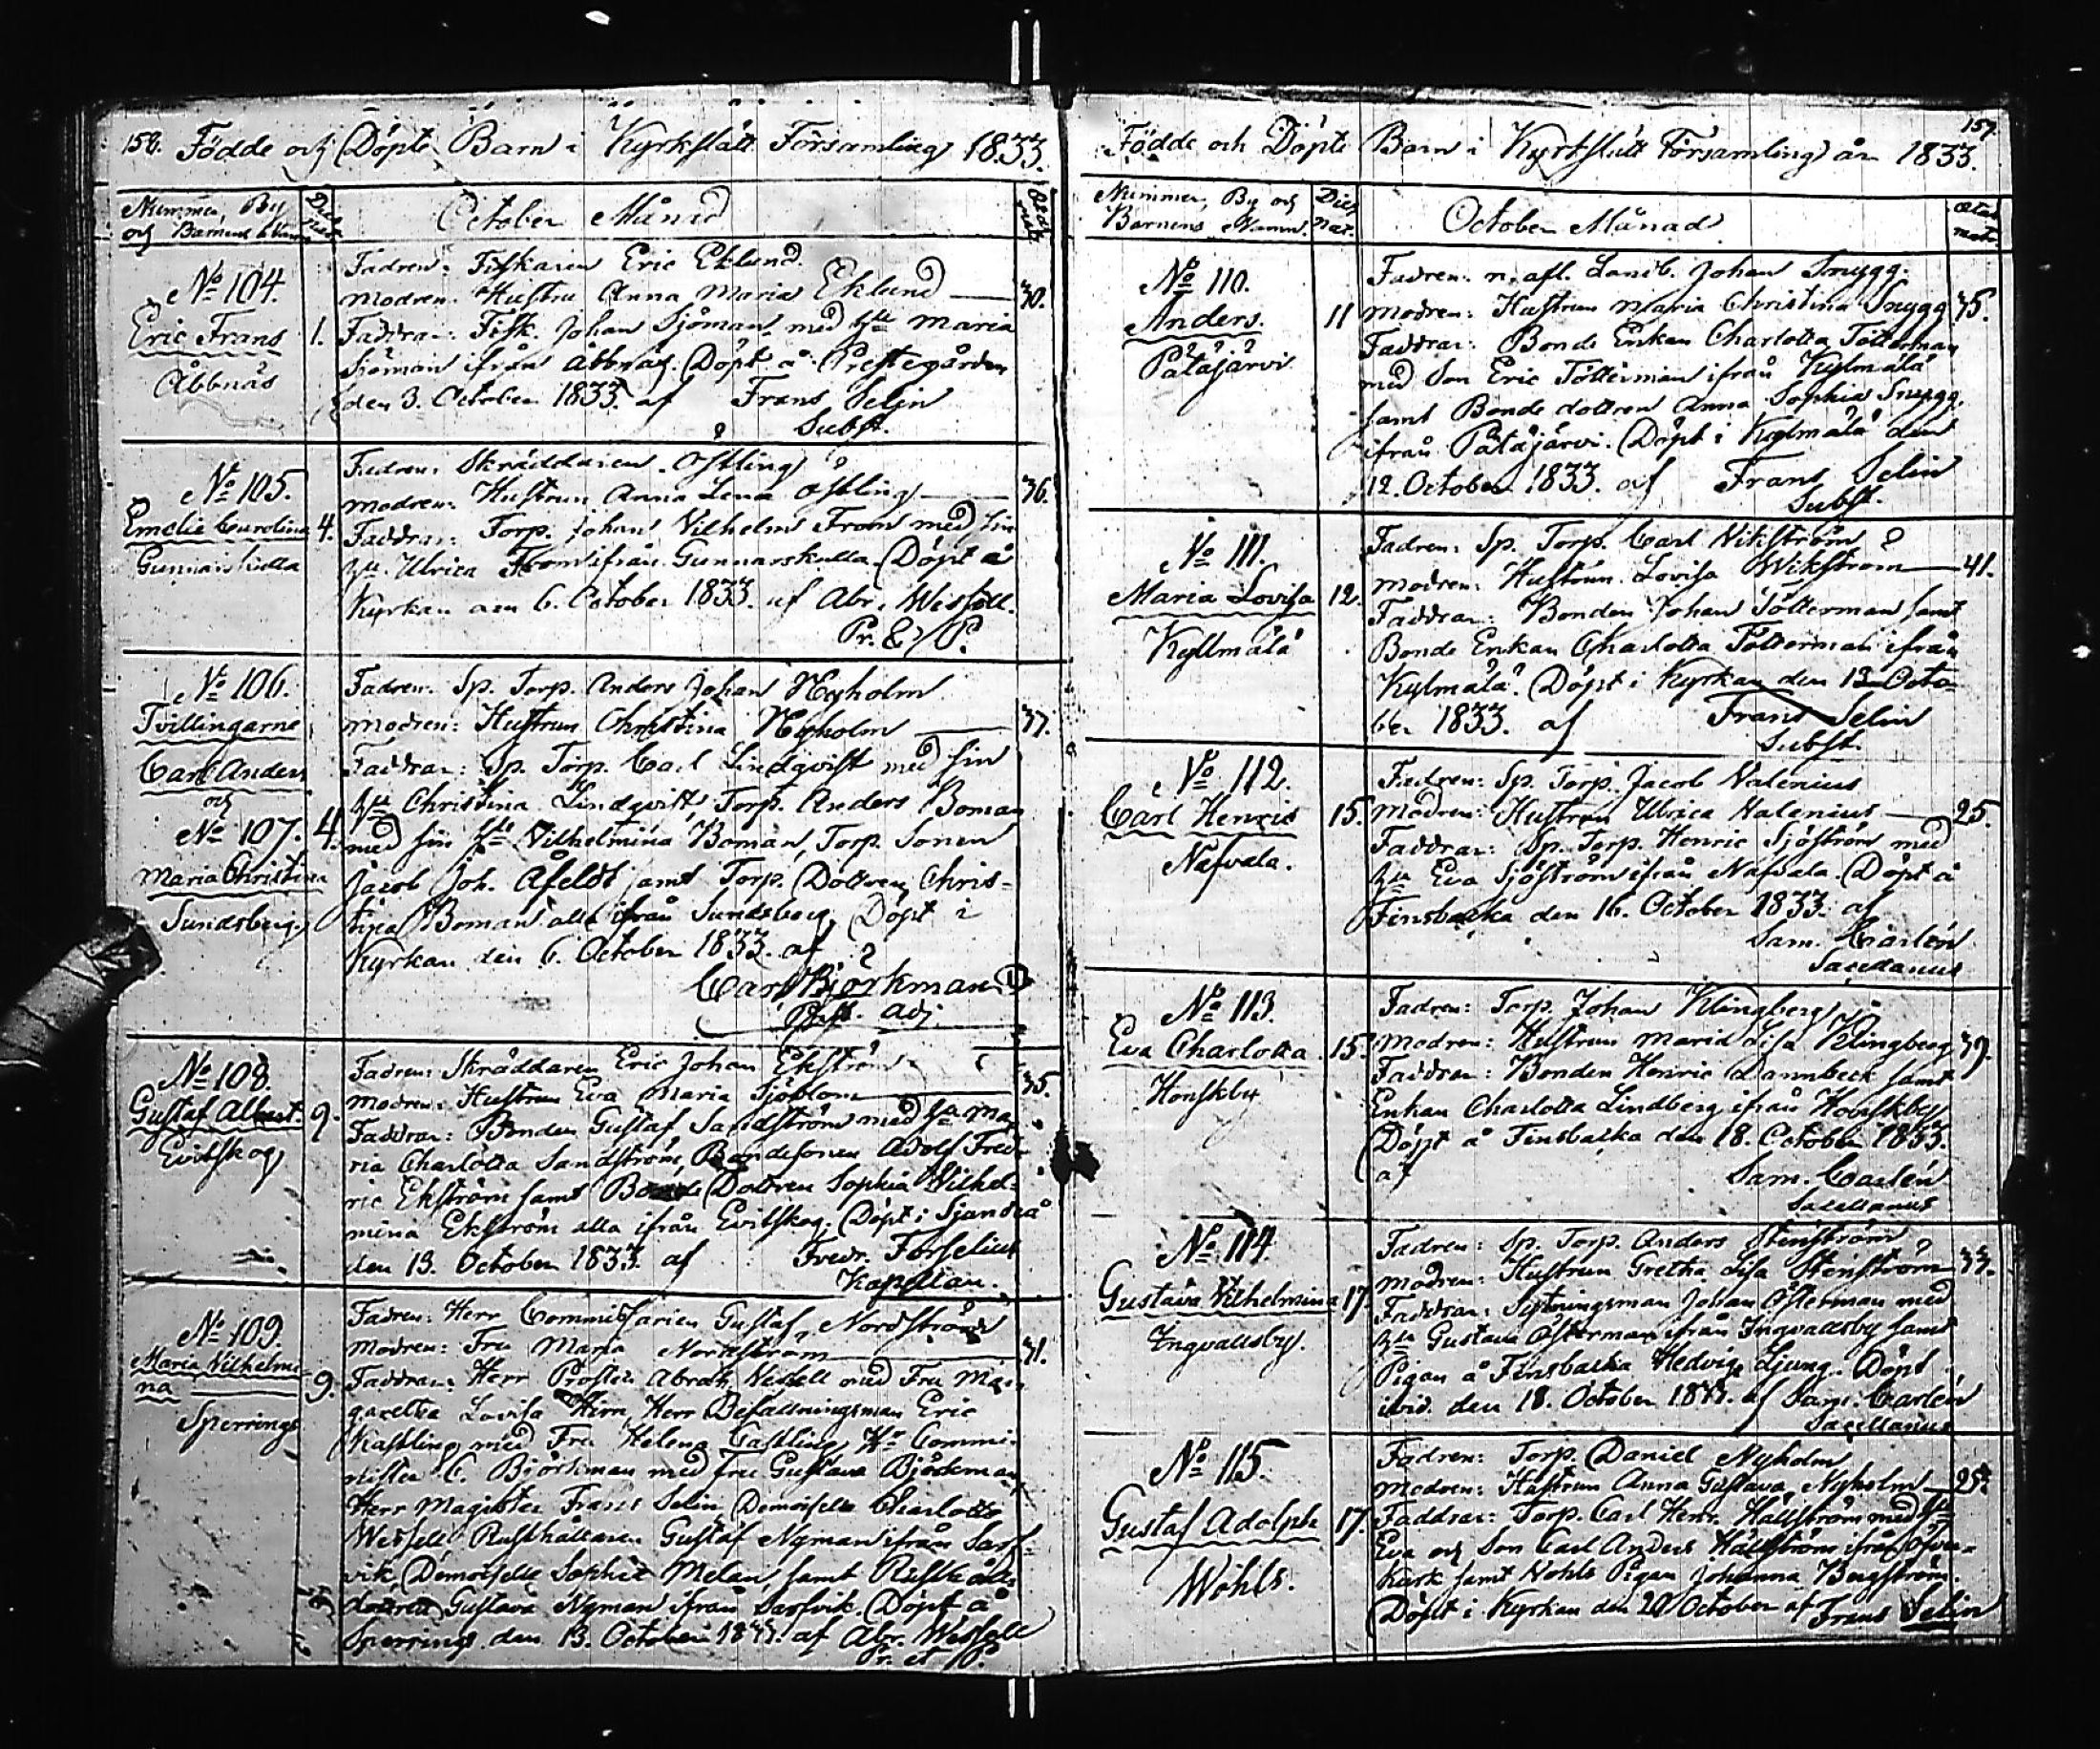 156. Födde och Döpte Barn i Kyrkslätt Församling 1833.
Nummer, By
och Barnens Namn
October Månad
No 104.
Eric Frans
Åbbnäs
1.
Fadren: Fiskaren Eric Eklund.
Modren: Hustru Anna Maria Eklund 30.
Faddrar: Fisk. Johan Sjöman med hu Maria
Sjöman ifrån Åbbnäs. Döpt å Prestegården
den 3. October 1833. af Frans Selin
Subst.
No 105.
Emelie Carolina
Gunnarskulla
4.
Fadren: Skräddaren Östling
Modren: Hustrun Anna Lena Östling 36.
Faddrar: Torp. Johan Vilhelm From med sin
hu Ulrica From ifrån Gunnarskulla. Döpt å
Kyrkan den 6. October 1833. af Abr. Wessell.
Pr. & P.
No 106.
Tvillingarne
Carl Anders
och
No 107.
Maria Christina
Sundsberg
4.
Fadren: Sp. Torp. Anders Johan Nyholm
Modren: Hustrun Christina Nyholm 37.
Faddrar: Sp. Torp. Carl Lindqvist med sin
hu Christina Lindqvist, Torp. Anders Boman
med sin hu Vilhelmina Boman, Torp. Sonen
Jacob Joh. Åfeldt samt Torp. Dottren Chris-
tina Boman alla ifrån Sundsberg. Döpt i
Kyrkan den 6. October 1833. af
Carl Björkman
Past. Adj.
No 108.
Gustaf Albert.
Evitskog
9.
Fadren: Skräddaren Eric Johan Ekström
Modren: Hustrun Eva Maria Sjöblom 35.
Faddrar: Bonden Gustaf Sandström med hu Ma
ria Charlotta Sandström, Bondesonen Adolf Fred-
ric Ekström samt Bonde Dottren Sophia Vilhel-
mina Ekström alla ifrån Evitskog. Döpt i Sjundeå
den 13. October 1833. af Fredr. Forselius
Kapellan.
No 109.
Maria Vilhelmi-
na
Sperrings
9.
Fadren: Herr Commissarien Gustaf Nordström
Modren: Fru Maria Nordström 31.
Faddrar: Herr Prosten Abrah. Wessell med Fru Mar-
garetha Lovisa Hirn, Herr Befallningsman Eric
Kastling med Fru Helena Castling, Hr Commi-
nister C. Björkman med Fru Gustava Björkman
Herr Magister Frans Selin, Demoiselle Charlotta
Wessell Rusthållaren Gustaf Nyman ifrån Sarf-
vik, Demoiselle Sophie Melan, samt Rusthåll-
dottren Gustava Nyman ifrån Sarfvik. Döpt å
Sperrings den 13. October 1833. af Abr. Wessell
Pr. et P.
157.
Födde och Döpte Barn i Kyrkslätt Församling år 1833.
Nummer, By och
Barnens Namn.
Dies
Nat.
October Månad
No 110.
Anders.
Påtäjärvi
11
Fadren: n. afl. Landb. Johan Snygg.
Modren: Hustrun Maria Christina Snygg 35.
Faddrar: Bonde Enkan Charlotta Tötterman
med Son Eric Tötterman ifrån Kylmälä
samt Bonde dottren Anna Sophia Snygg.
ifrån Påtäjärvi. Döpt i Kylmälä den
12. October 1833. af Frans Selin
Subst.
No 111.
Maria Lovisa
Kyllmälä
12.
Fadren: Sp. Torp. Carl Vikström
Modren: Hustrun Lovisa Wikström 41.
Faddrar: Bonden Johan Tötterman samt
Bonde Enkan Charlotta Tötterman ifrån
Kylmälä. Döpt i Kyrkan den 13 Octo-
ber 1833. af Frans Selin
Subst.
No 112.
Carl Henric
Nafvala.
15.
Fadren: Sp. Torp. Jacob Valenius
Modren: Hustrun Ulrica Valenius 25.
Faddrar: Sp. Torp. Henric Sjöström med
hu Eva Sjöström ifrån Nafvala. Döpt å
Finsbacka den 16. October 1833. af
Sam. Carlén
Sacellanus
No 113.
Eva Charlotta
Honskby
15.
Fadren: Torp. Johan Klingberg
Modren: Hustrun Maria Lisa Klingberg 39.
Faddrar: Bonden Henric Dannbeck samt
Enkan Charlotta Lindberg ifrån Honskby
Döpt å Finsbacka den 18. October 1833.
af Sam. Carlén
Sacellanus
No 114.
Gustava Vilhelmina
Ingvallsby.
17.
Fadren: Sp. Torp. Anders Stenström
Modren: Hustrun Gretha Lisa Stenström 33.
Faddrar: Sytningsman Johan Österman med
hu Gustava Österman ifrån Ingvallsby samt
Pigan å Finsbacka Hedvig Ljung. Döpt
ibid. den 18. October 1833. af Sam. Carlén
Sacellanus
No 115.
Gustaf Adolph
Wohls.
17.
Fadren: Torp. Daniel Nyholm
Modren: Hustrun Anna Gustava Nyholm 25.
Faddrar: Torp. Carl Henr. Hällström med hu
Eva och Son Carl Anders Hällström ifrån Öfver-
kurk samt Wohls Pigan Johanna Bergström.
Döpt i Kyrkan den 20 October af Frans Selin